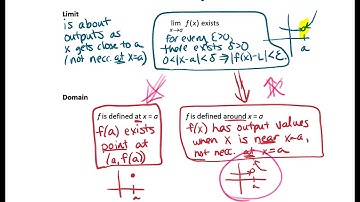 Limit
is about
outputs as
x gets close to a
(not necc. at x=a)
lim f(x) exists
x→a
for every ε>0,
there exists δ>0
0<|x-a|<δ ⇒ |f(x)-L|<ε.
a
Domain
f is defined at x = a
f(a) exists
point at
(a, f(a))
a
f is defined around x = a
f(x) has output values
when x is near x=a,
not necc. at x=a
a